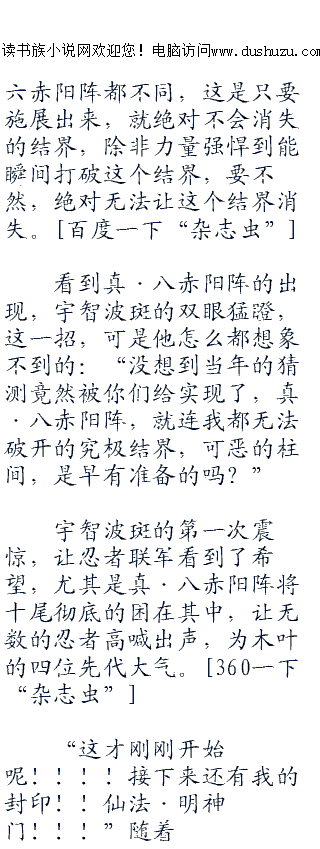 读书族小说网欢迎您！电脑访问www.dushuzu.com
六赤阳阵都不同，这是只要
施展出来，就绝对不会消失
的结界，除非力量强悍到能
瞬间打破这个结界，要不
然，绝对无法让这个结界消
失。[百度一下“杂志虫”]
看到真·八赤阳阵的出
现，宇智波斑的双眼猛蹬，
这一招，可是他怎么都想象
不到的：“没想到当年的猜
测竟然被你们给实现了，真
·八赤阳阵，就连我都无法
破开的究极结界，可恶的柱
间，是早有准备的吗？”
宇智波斑的第一次震
惊，让忍者联军看到了希
望，尤其是真·八赤阳阵将
十尾彻底的困在其中，让无
数的忍者高喊出声，为木叶
的四位先代大气。[360一下
“杂志虫”]
“这才刚刚开始
呢！！！！接下来还有我的
封印！！仙法·明神
门！！！”随着